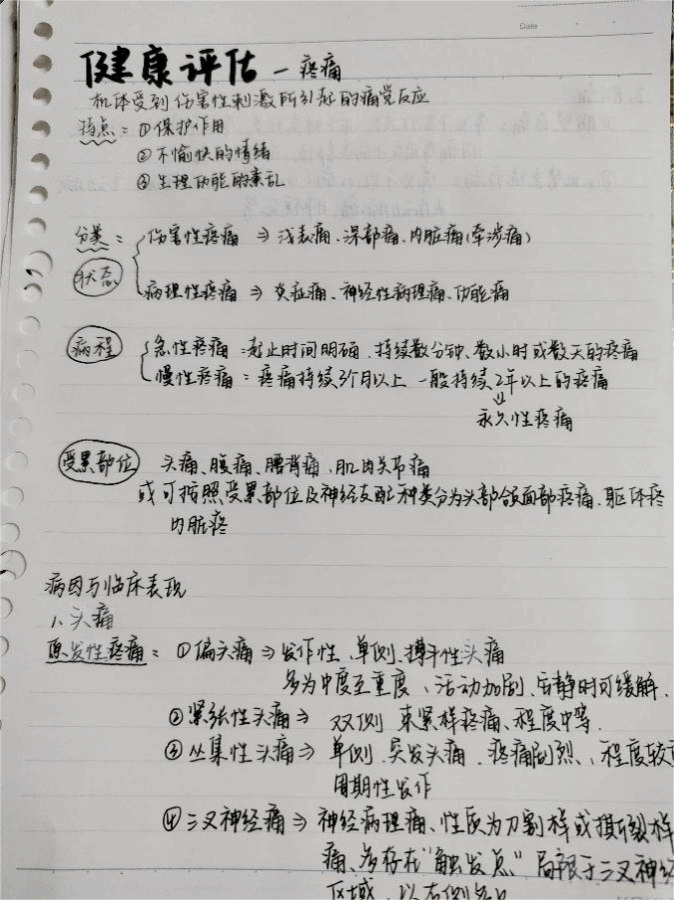 Date
健康评估 — 疼痛
机体受到伤害性刺激所引起的痛觉反应
特点: ①保护作用
②不愉快的情绪
③生理功能的紊乱
分类: 伤害性疼痛 ⇒ 浅表痛、深部痛、内脏痛(牵涉痛)
状态
病理性疼痛 ⇒ 炎症痛、神经性病理痛、功能痛
病程 急性疼痛:起止时间明确、持续数分钟、数小时或数天的疼痛
慢性疼痛:疼痛持续3个月以上 一般持续2年以上的疼痛
永久性疼痛
受累部位 头痛、腹痛、腰背痛、肌肉关节痛
或可按照受累部位及神经支配种类分为头部颌面部疼痛、躯体疼
内脏疼
病因与临床表现
1、头痛
原发性疼痛: ①偏头痛 ⇒ 发作性、单侧、搏斗性头痛
多为中度至重度、活动加剧、安静时可缓解.
②紧张性头痛 ⇒ 双侧 束紧样疼痛、程度中等.
③丛集性头痛 ⇒ 单侧、突发头痛、疼痛剧烈、程度较
周期性发作
④三叉神经痛 ⇒ 神经病理痛、性质为刀割样或撕裂样
痛、多存在"触发点" 局限于三叉神经
区域、以右侧